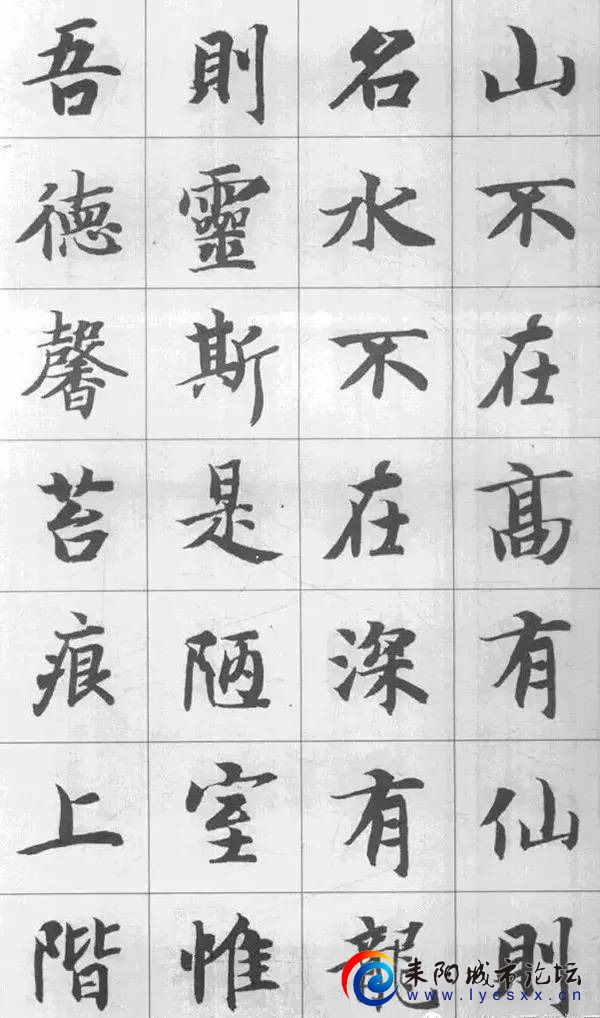 山不在高有仙則
名水不在深有龍
則靈斯是陋室惟
吾德馨苔痕上階
耒阳城市论坛
www.lycsxx.cn